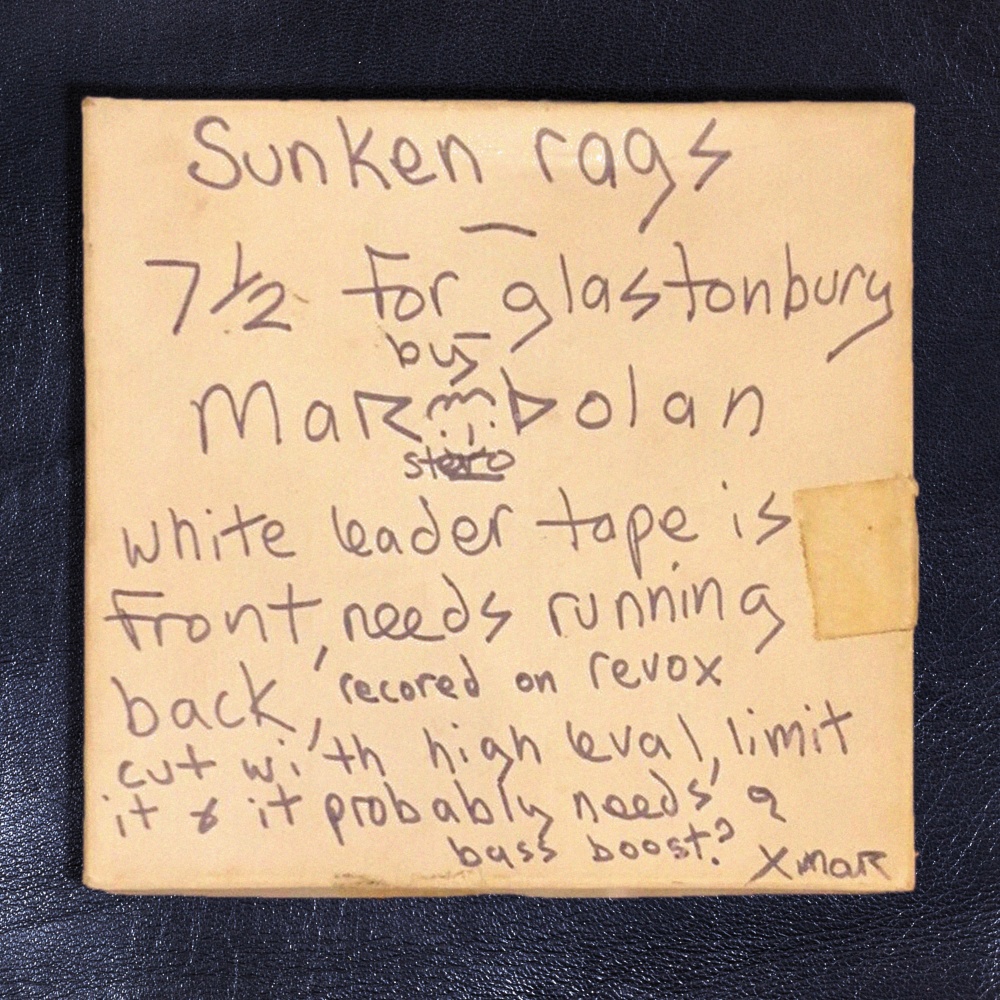 Sunken rags
7½ for glastonbury
by
Mar Bolan
stero
white leader tape is
front, needs running
back, recored on revox
cut with high leval, limit
it & it probably needs a
bass boost? XMAR